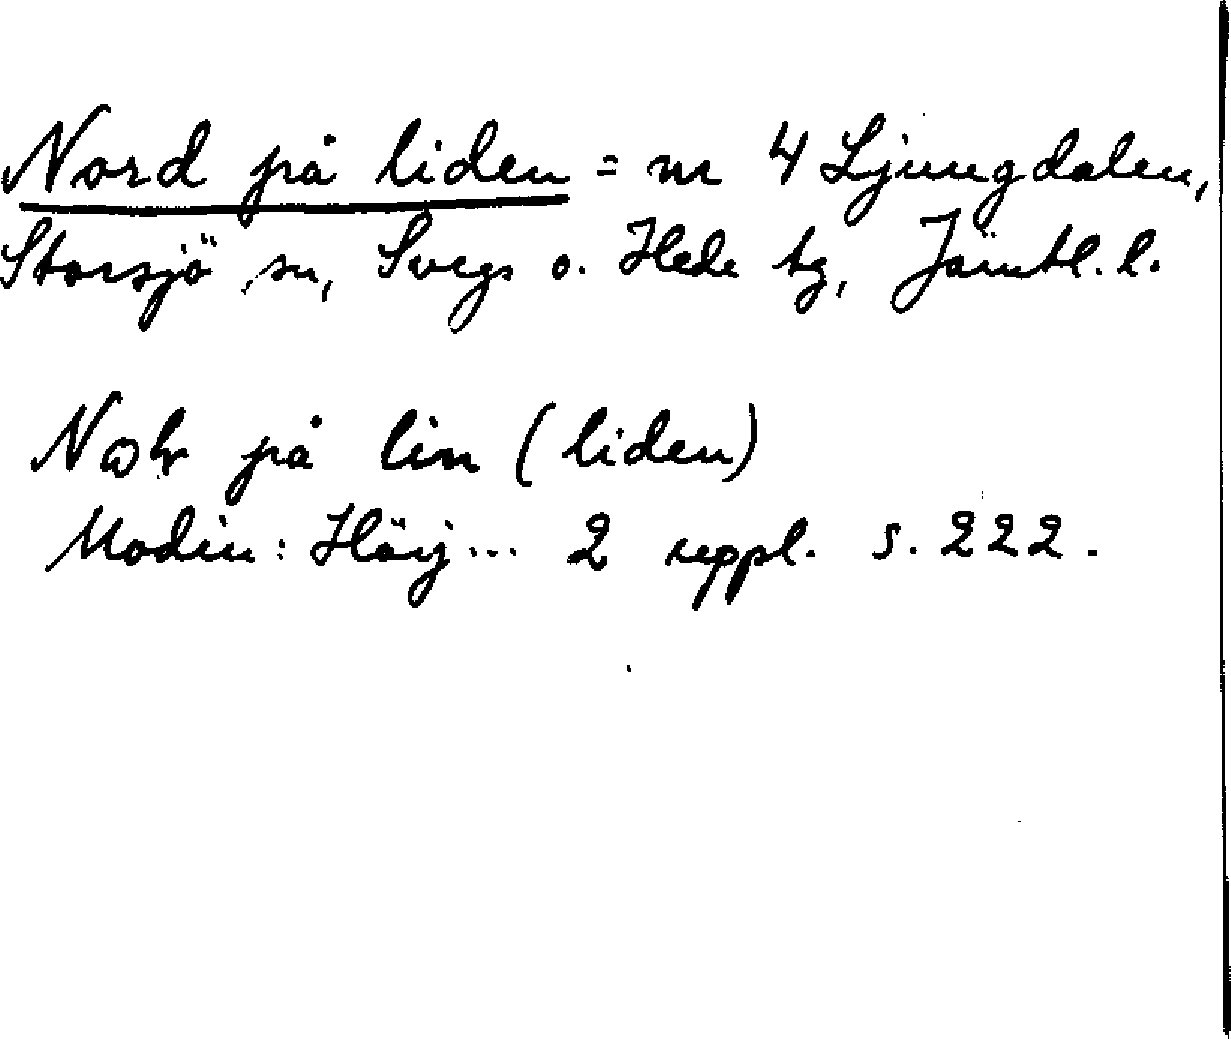 Nord på liden = nr 4 Ljungdalen,
Storsjö sn, Svegs o. Hede tg, Jämtl. l.
på lin (liden)
Modin: Härj... 2 uppl. s. 222.